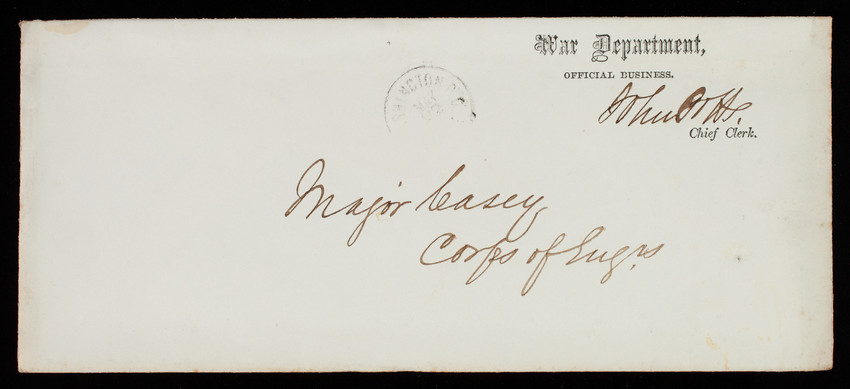 War Department,
OFFICIAL BUSINESS.
John Potts,
Chief Clerk.
Major Casey,
Corps of Engrs